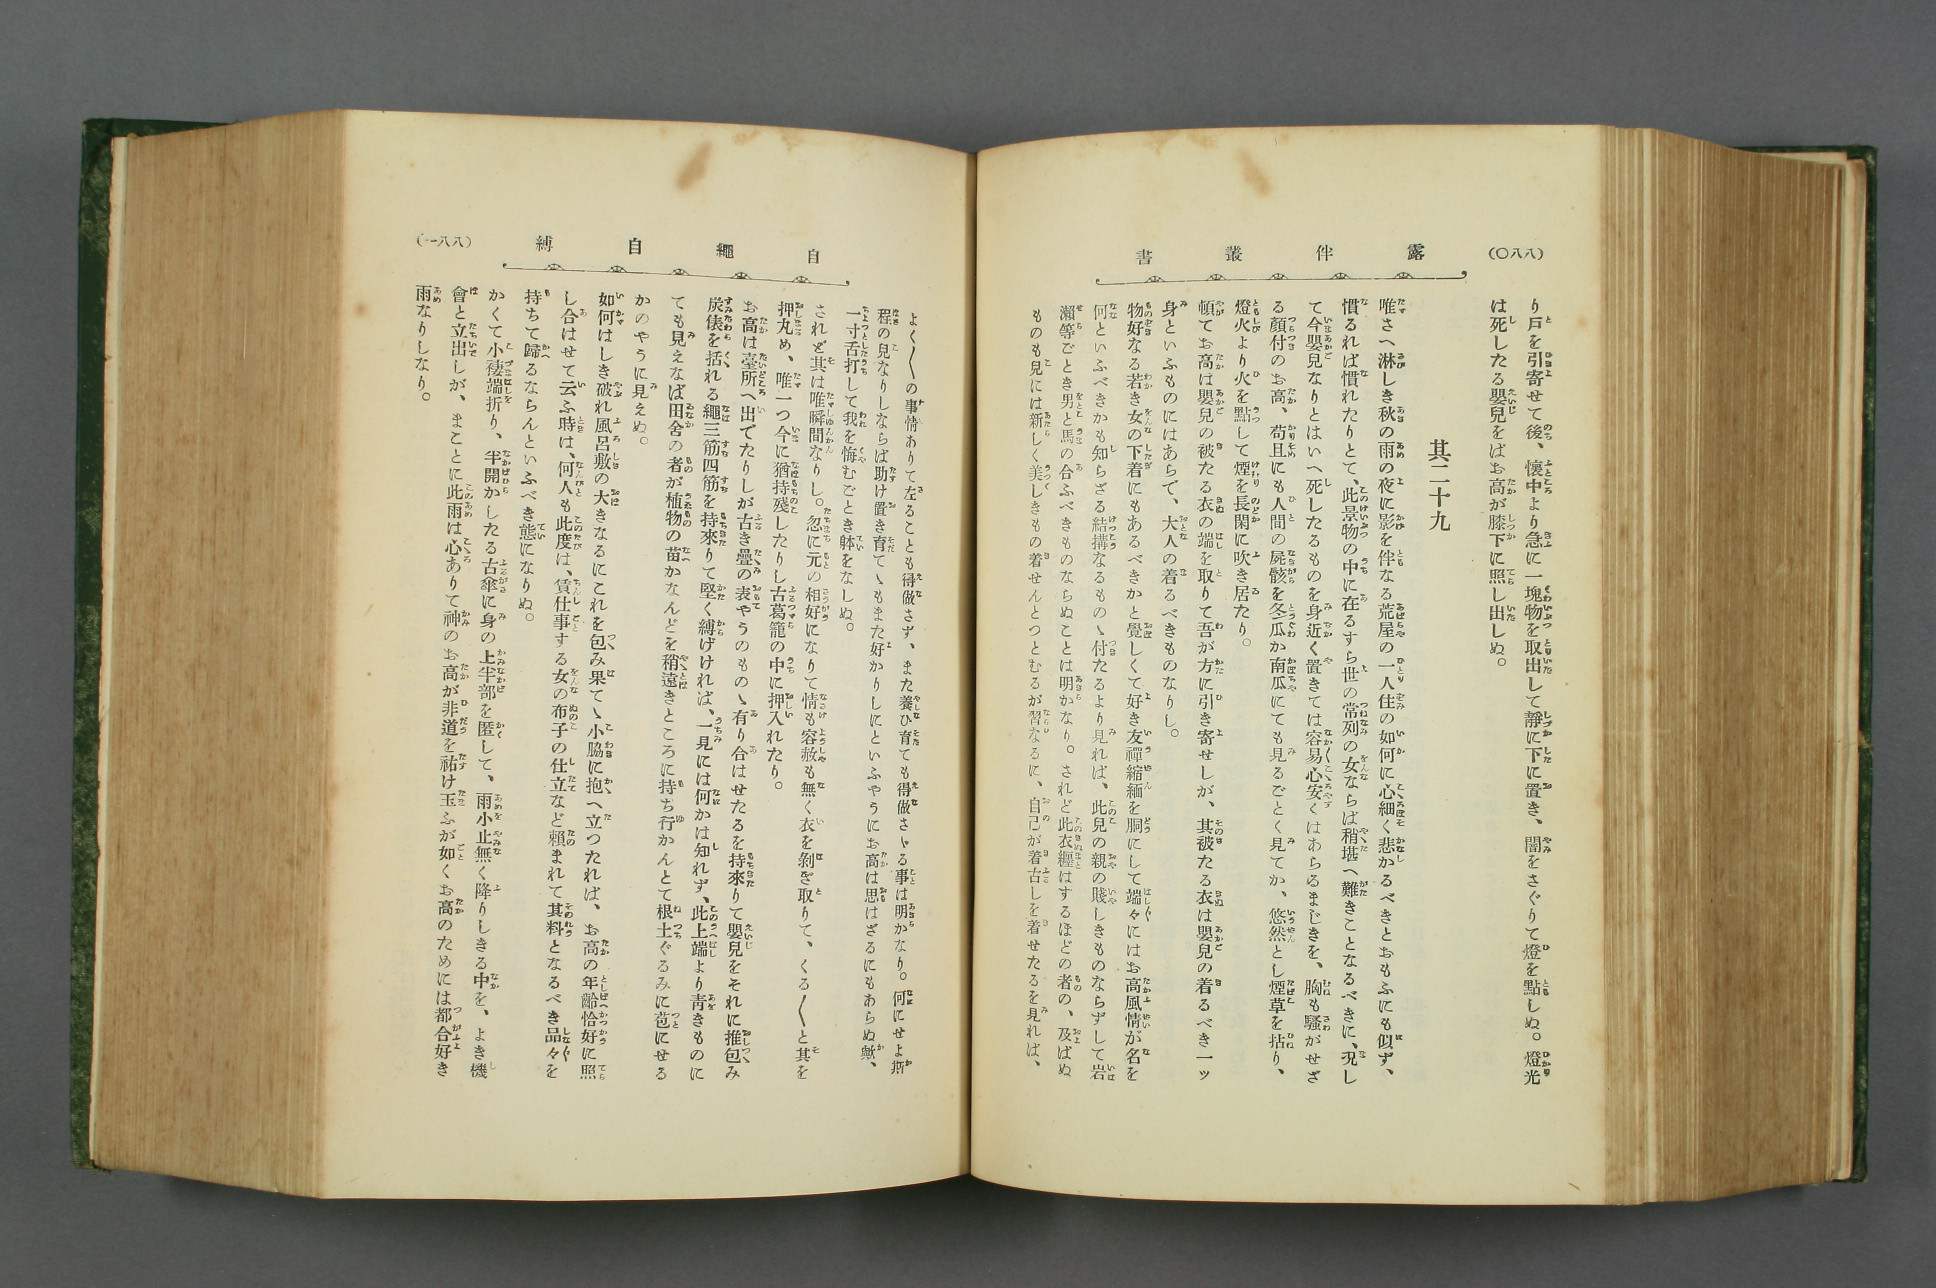 (八八〇)
露伴叢書
り戸を引寄せて後、懷中より急に一塊物を取出して靜に下に置き、闇をさぐりて燈を點しぬ。燈光
は死したる嬰兒をばお高が膝下に照し出しぬ。
其二十九
唯さへ淋しき秋の雨の夜に影を伴なる荒屋の一人住の如何に心細く悲かるべきとおもふにも似ず、
慣るれば慣れたりとて、此景物の中に在るすら世の常列の女ならば稍堪へ難きことなるべきに、況し
て今嬰兒なりとはいへ死したるものを身近く置きては容易心安くはあらるまじきを、胸も騷がせざ
る顏付のお高、苟且にも人間の屍骸を冬瓜か南瓜にても見るごとく見てか、悠然とし煙草を拈り、
燈火より火を點して煙を長閑に吹き居たり。
頓てお高は嬰兒の被たる衣の端を取りて吾が方に引き寄せしが、其被たる衣は嬰兒の着るべき一ッ
身といふものにはあらで、大人の着るべきものなりし。
物好なる若き女の下着にもあるべきかと覺しくて好き友禪縮緬を胴にして端々にはお高風情が名を
何といふべきかも知らざる結搆なるものゝ付たるより見れば、此兒の親の賤しきものならずして岩
瀨等ごとき男と馬の合ふべきものならぬことは明かなり。されど此衣纒はするほどの者の、及ばぬ
ものも兒には新しく美しきもの着せんとつとむるが習なるに、自己が着古しを着せたるを見れば、
自繩自縛
(八八一)
よく〱の事情ありて左ることも得做さず、また養ひ育ても得做さゞる事は明かなり。何にせよ斯
程の兒なりしならば助け置き育てゝもまた好かりしにといふやうにお高は思はざるにもあらぬ歟、
一寸舌打して我を悔むごとき躰をなしぬ。
されど其は唯瞬間なりし。忽に元の相好になりて情も容赦も無く衣を剝ぎ取りて、くる〱と其を
押丸め、唯一つ今に猶持殘したりし古葛籠の中に押入れたり。
お高は臺所へ出でたりしが古き疊の表やうのものゝ有り合はせたるを持來りて嬰兒をそれに推包み
炭俵を括れる繩三筋四筋を持來りて堅く縛げければ、一見には何かは知れず、此上端より靑きものに
ても見えなば田舍の者が植物の苗かなんどを稍遠きところに持ち行かんとて根土ぐるみに苞にせる
かのやうに見えぬ。
如何はしき破れ風呂敷の大きなるにこれを包み果てゝ小脇に抱へ立つたれば、お高の年齡恰好に照
し合はせて云ふ時は、何人も此度は、賃仕事する女の布子の仕立など賴まれて其料となるべき品々を
持ちて歸るならんといふべき態になりぬ。
かくて小褄端折り、半開かしたる古傘に身の上半部を匿して、雨小止無く降りしきる中を、よき機
會と立出しが、まことに此雨は心ありて神のお高が非道を祐け玉ふが如くお高のためには都合好き
雨なりしなり。